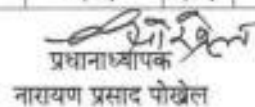 प्रधानाध्यापक
नारायण प्रसाद पोख्रेल